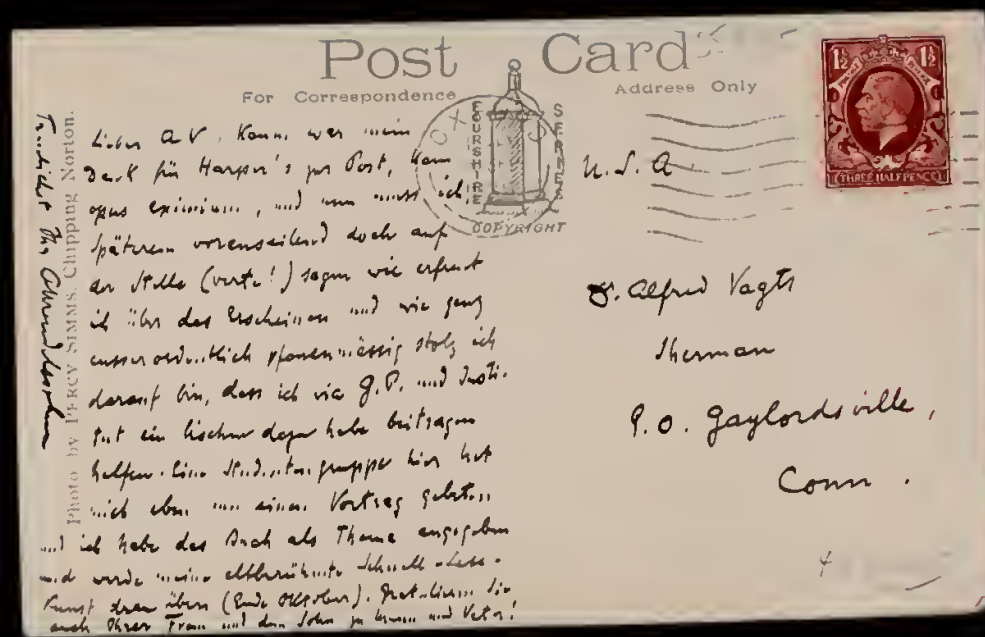 Post Card
For Correspondence
Address Only
FOURSHIRE SERIES
COPYRIGHT
1½ 1½
POSTAGE REVENUE
THREE HALFPENCE
Photo by PERCY SIMMS, Chipping Norton.
Lieber AV, Kaum war mein
Dank für Harper's zur Post, kam
opus eximium, und nun muss ich,
Späterem vorauseilend doch auf
der Stelle (verte!) sagen wie erfreut
ich über das Erscheinen und wie ganz
ausserordentlich pfauenmässig stolz ich
darauf bin, dass ich via G.P. und Insti-
tut ein bischen dazu habe beitragen
helfen. Eine Studentengruppe hier hat
mich eben um einen Vortrag gebeten
und ich habe das Buch als Thema angegeben
und werde meine altberühmte Schnell-Lese-
Kunst dran üben (Ende Oktober). Gratulieren Sie
auch Ihrer Frau und dem Sohn zu Mann und Vater!
Ihr
U.S.A
Dr. Alfred Vagts
Sherman
P.O. Gaylordsville,
Conn.